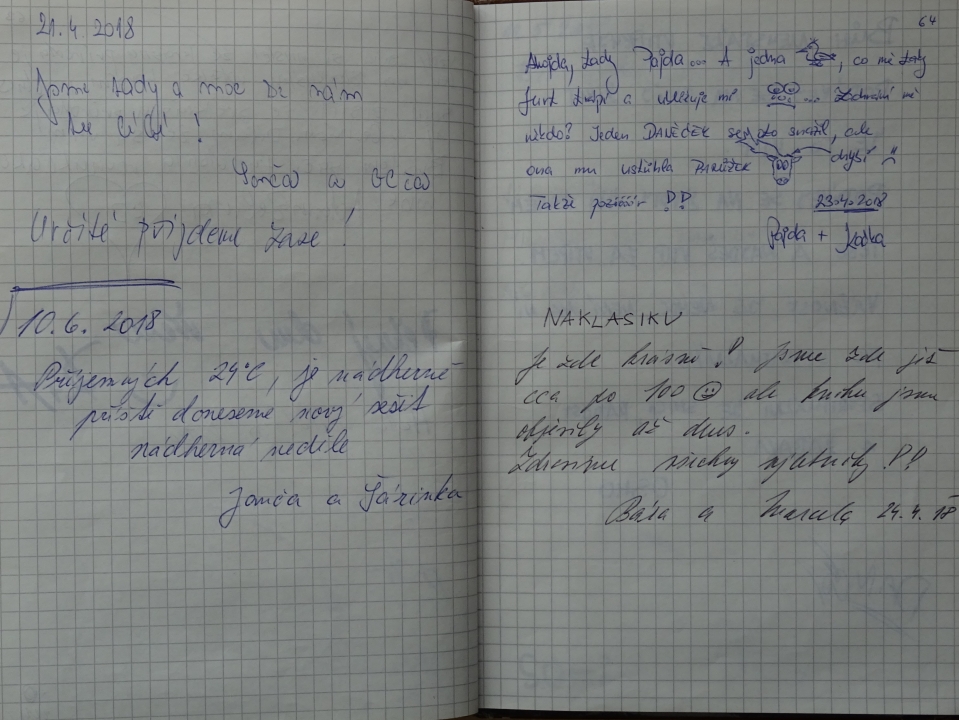 21.4.2018
Jsme tady a moc se nám
tu líbí!
Soňča a
Určitě příjdeme zase!
10.6. 2018
Příjemných 24°C, je nádherně
příště doneseme nový sešit
nádherná neděle
Janča a Járinka
64
Ahojda, tady Pajda... A jedna , co mi tady
furt a mi ... Zachrání mě
někdo? Jeden DAVEČEK se o to snažil, ale
ona mu chybí
Takže pozióóór !! 23.4.2018
Pajda + Kačka
NAKLASIKU
Je zde krásně! Jsme zde již
cca po 100 ale knihu jsme
objevily až dnes.
Zdravíme všechny výletníky!!
Bára a Marcela 24.4.18